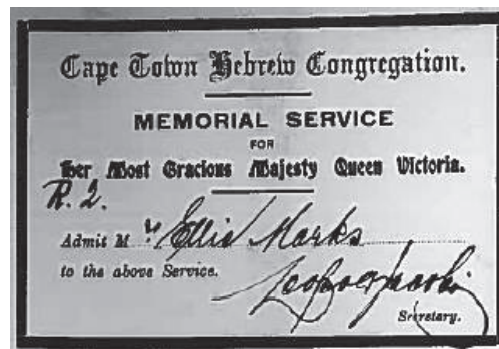 Cape Town Hebrew Congregation.
MEMORIAL SERVICE
FOR
Her Most Gracious Majesty Queen Victoria.
R. 2.
Admit Mr Ellis Marks
to the above Service.
Secretary.